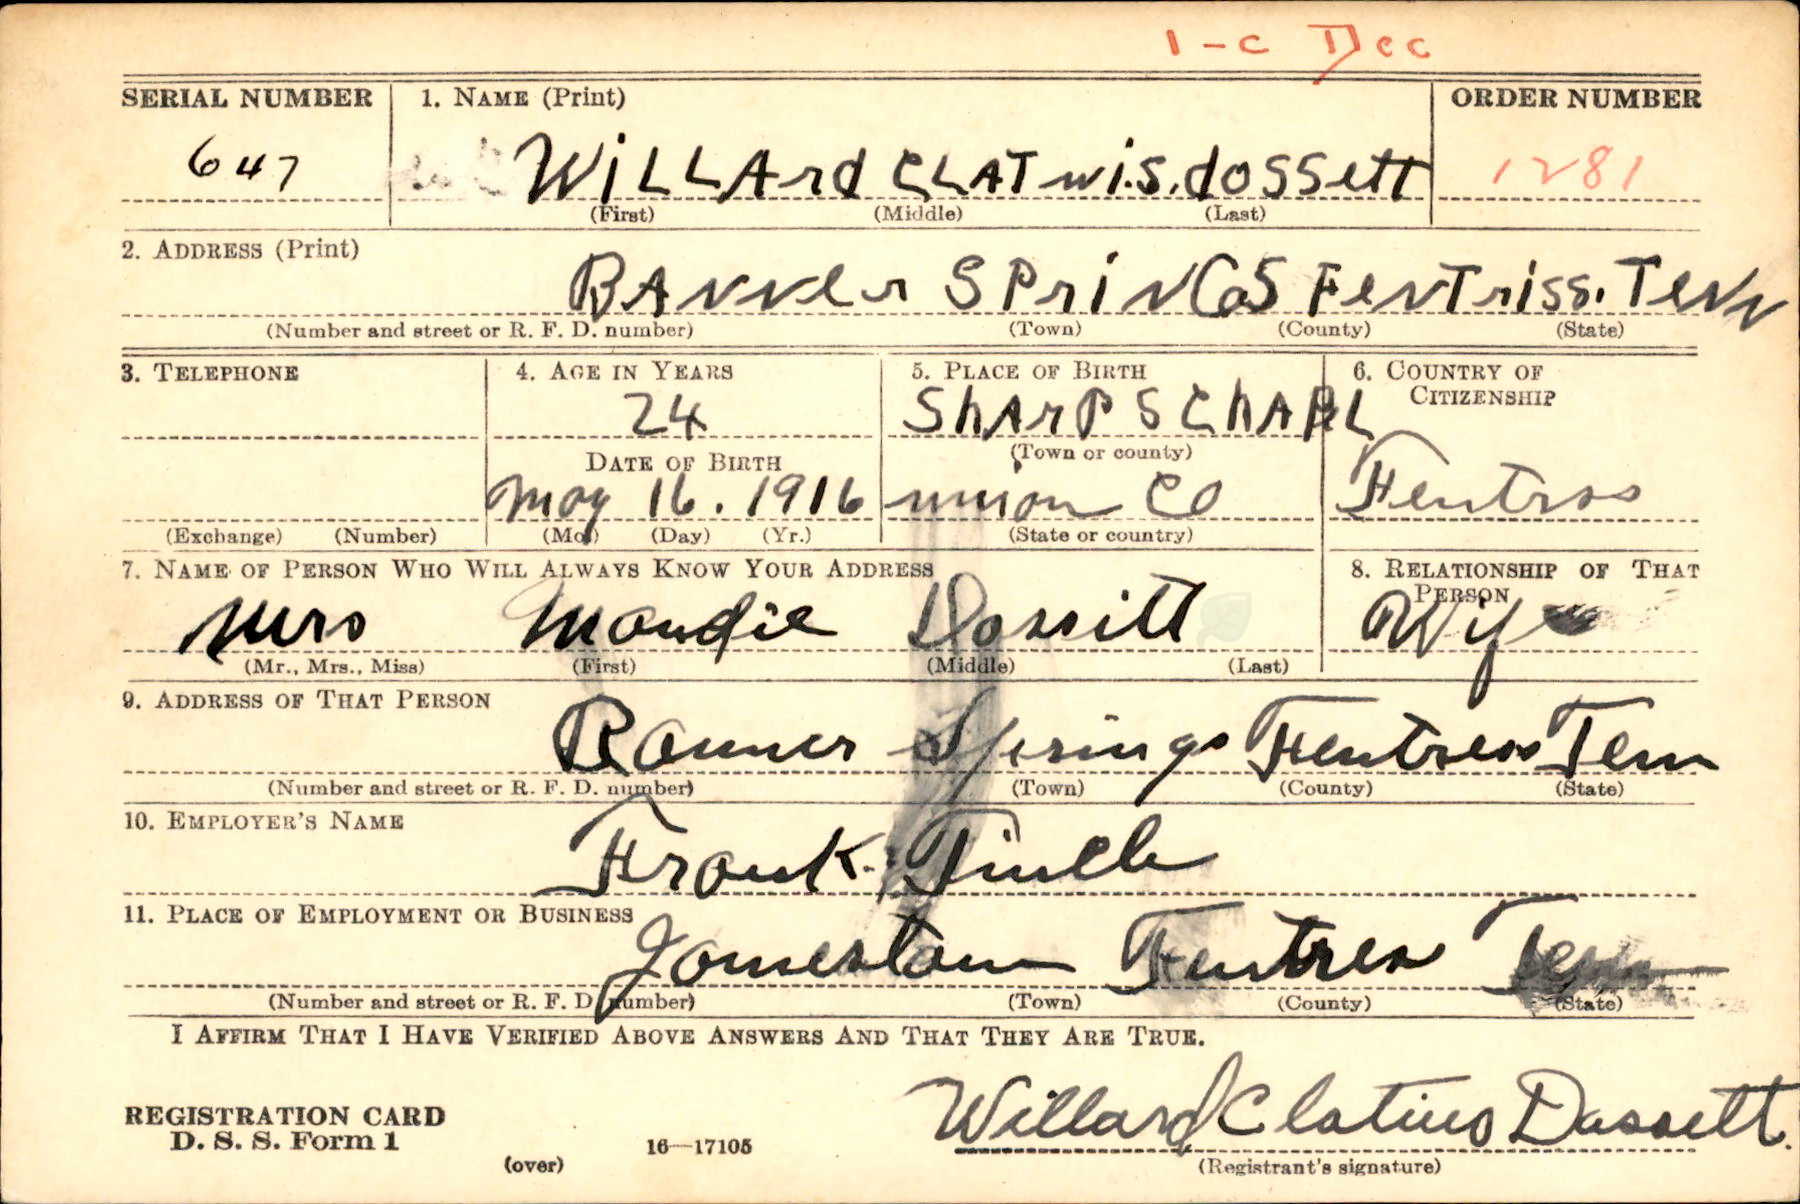 1-C Dec
SERIAL NUMBER 1. NAME (Print) ORDER NUMBER
647 WiLLArd CLATwi.S. dOSSett 1281
(First) (Middle) (Last)
2. ADDRESS (Print)
BANNer SPriNGS FeNTriss. TeNN
(Number and street or R. F. D. number) (Town) (County) (State)
3. TELEPHONE 4. AGE IN YEARS 5. PLACE OF BIRTH 6. COUNTRY OF CITIZENSHIP
24 ShArP SChAPL
DATE OF BIRTH (Town or county)
May 16. 1916 union Co Fentros
(Exchange) (Number) (Mo.) (Day) (Yr.) (State or country)
7. NAME OF PERSON WHO WILL ALWAYS KNOW YOUR ADDRESS 8. RELATIONSHIP OF THAT PERSON
Mrs Maudie Dossitt Wife
(Mr., Mrs., Miss) (First) (Middle) (Last)
9. ADDRESS OF THAT PERSON
Banner Springs Fentress Tenn
(Number and street or R. F. D. number) (Town) (County) (State)
10. EMPLOYER'S NAME
Frank
11. PLACE OF EMPLOYMENT OR BUSINESS
Jamestown Fentress Tenn
(Number and street or R. F. D. number) (Town) (County) (State)
I AFFIRM THAT I HAVE VERIFIED ABOVE ANSWERS AND THAT THEY ARE TRUE.
Willard Clatius Dossett.
REGISTRATION CARD
D. S. S. Form 1
(over) 16—17105 (Registrant's signature)